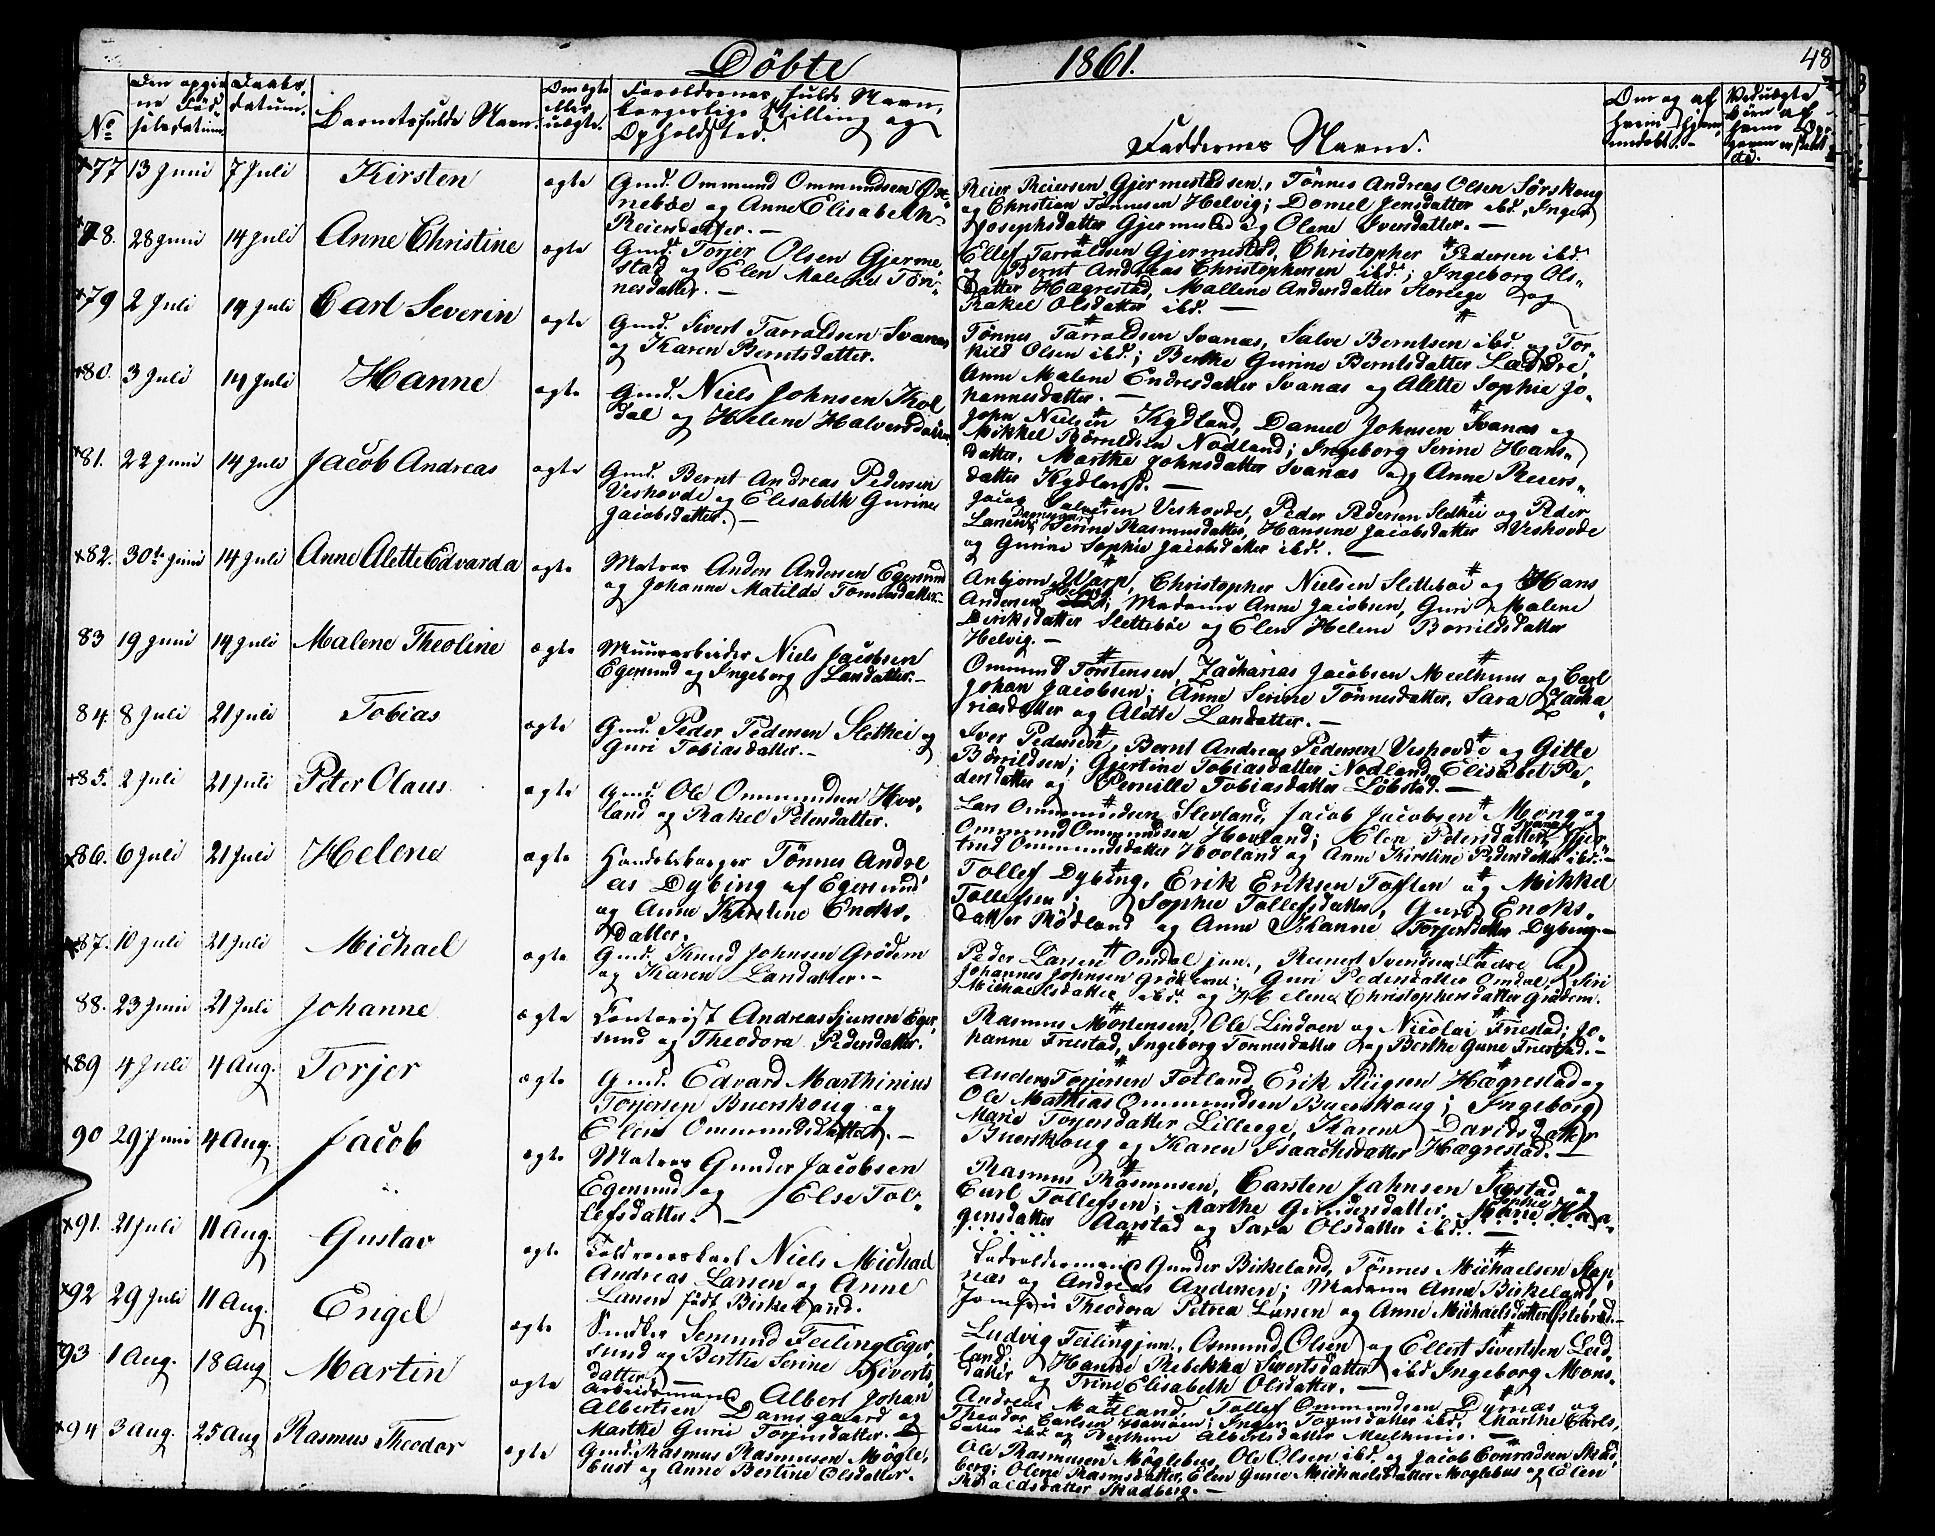 Döbte 1861. 48
No
Den opgivne Fødselsdatum
Daabsdatum.
Barnets fulde Navn.
Om ægte eller uægte.
Forældrenes fulde Navn, borgerlige Stilling og Opholdsted.
Faddernes Navne.
77 13 Juni 7 Juli Kirsten ægte
Gmd. Ommund Ommundsen
og Anne Elisabeth
Reiersdatter. —
Reier Reiersen Gjermestad, Tönnes Andreas Olsen Sörskoug
og Christian Tönnesen Helvig; Dorthe Jensdatter ibd, Inger
Josephsdatter Gjermestad og Olene Iversdatter. —
78. 28 Juni 14 Juli Anne Christine ægte
Gmd. Torjer Olsen Gjerme
stad og Elen Malene Tön
nesdatter. —
Ellef Tarraldsen Gjermestad, Christopher Pedersen ibd.
og Bernt Andreas Christophersen ibd.; Ingeborg Ols-
datter Hægrestad, Mallene Andersdatter Storeege og
Rakel Olsdatter ibd. —
79 2 Juli 14 Juli Carl Severin ægte
Gmd. Sivert Tarraldsen Svanæs
og Karen Berntsdatter.
Tönnes Tarraldsen Svanæs, Salve Berntsen ibd. og Tor
kild Olsen ibd.; Berthe Gurine Berntsdatter Lædre,
Anne Malene Endresdatter Svanæs og Alette Sophie Jo-
hannesdatter. —
80. 3 Juli 14 Juli Hanne ægte
Gmd. Niels Johnsen Kol
dal og Helene Halvorsdatter
John Nielsen Kydland, Daniel Johnsen Svanæs og
Mikkel Börrildsen Nodland; Ingeborg Serine Hans-
datter, Marthe Johnsdatter Svanæs og Anne Reiers-
datter Kydland. —
81. 22 Juni 14 Juli Jacob Andreas ægte
Gmd. Bernt Andreas Pedersen
Veshovde og Elisabeth Gurine
Jacobsdatter. —
Jacob Salvesen Veshovde, Peder Pedersen Slethei og Peder
Larsen; Serine Rasmusdatter, Hansine Jacobsdatter Veshovde
og Gurine Sophie Jacobsdatter ibd. —
82. 30te Juni 14 Juli Anne Alette Edvarda ægte
Matros Anders Andersen Egersund
og Johanne Matilde Tönnesdatter. —
Anbjörn Warp, Christopher Nielsen Slettebøe og Hans
Andersen; Madame Anne Jacobsen, Guri Malene
Dirksdatter Slettebøe og Elen Helene Borrildsdatter
Helvig. —
83 19 Juni 14 Juli Malene Theoline ægte
Muurarbeider Niels Jacobsen
Egersund og Ingeborg Larsdatter. —
Ommund Torstensen, Zacharias Jacobsen Meelhuus og Carl
Johan Jacobsen; Anne Serine Tönnesdatter, Sara Zacha-
riasdatter og Alette Larsdatter. —
84. 8 Juli 21 Juli Tobias ægte
Gmd. Peder Pedersen Slethei og
Guri Tobiasdatter. —
Iver Pedersen, Bernt Andreas Pedersen Veshovde og Gitle
Börrildsen; Gjertine Tobiasdatter Nodland, Elisabet Pe-
dersdatter og Pernille Tobiasdatter Löbstad. —
85. 2 Juli 21 Juli Peter Olaus ægte
Gmd. Ole Ommundsen Hov-
land og Rakel Petersdatter.
Lars Ommundsen Slevland, Jacob Jacobsen Mong og
Ommund Ommundsen Hovland; Elen Petersdatter, Gjer
trud Ommundsdatter Hovland og Anne Kirstine Pedersdatter ibd. —
86. 6 Juli 21 Juli Helene ægte
Handelsborger Tönnes Andre
as Dybing af Egersund
og Anne Kirstine Enoks-
datter.
Tollef Dybing, Erik Eriksen Tofften og Mikkel
Tollefsen; Sophie Tollefsdatter, Guri Enoks-
datter Rödland og Anne Hanne Torjersdatter Dybing. —
87. 10 Juli 21 Juli Michael ægte
Gmd. Knud Johnsen Grödem
og Karen Larsdatter. —
Peder Larsen Omdal jun., Reinert Svendsen Lædre og
Johannes Johnsen Grödem; Guri Pedersdatter Omdal, Siri
Michaelsdatter ibd. og Helene Christophersdatter Grödem.
88. 23 Juni 21 Juli Johanne ægte
Contorist Andreas Sjursen Eger-
sund og Theodora Pedersdatter.
Rasmus Mortensen, Ole Lindoen og Nicolai Friestad; Jo-
hanne Friestad, Ingeborg Tönnesdatter og Berthe Gurie Friestad. —
89 4 Juli 4 Aug. Torjer ægte
Gmd. Edvard Marthinius
Torjersen Buerskoug og
Elen Ommundsdatter. —
Anders Torjersen Fotland, Erik Riigsen Hægrestad og
Ole Mathias Ommundsen Buerskoug; Ingeborg
Marie Torjersdatter Lilleege, Karen Davidsdatter
Buerskoug og Karen Isaachsdatter Hægrestad. —
90 29 Juni 4 Aug. Jacob ægte
Matros Gunder Jacobsen
Egersund og Else Tol-
lefsdatter. —
Rasmus Rasmusen, Carsten Jahnsen og
Carl Tollefsen; Marthe Gundersdatter, Marie Haa-
gensdatter Aarstad og Sara Olsdatter ibd. —
91. 21 Juli 11 Aug. Gustav ægte
Niels Michael
Andreas Larsen og Anne
Larsen født Birkeland.
Gunder Birkeland, Tönnes Michaelsen Skap
næs og Andreas Andersen; Madame Anne Birkeland,
Jomfru Theodora Petrea Larsen og Anne Michaelsdatter Östebröd. —
92 29 Juli 11 Aug. Engel ægte
Snedker Semund Feiling Eger-
sund og Berthe Serine Siverts-
datter. —
Ludvig Feiling jun., Osmund Olsen og Ellert Sivertsen Leid
land; Hanne Rebekka Sivertsdatter ibd, Ingeborg Mons-
datter og Trine Elisabeth Olsdatter. —
93 1 Aug. 18 Aug Martin ægte
Arbeidsmand Albert Johan
Albertsen Damsgaard og
Marthe Gurie Torjersdatter.
Andreas Madland, Tollef Ommundsen Dyrnæs og
Theodor Carlsen Havsöen; Inger Torjersdatter ibd., Marthe Carls-
datter ibd og Albertsdatter Meelhuus. —
94 3 Aug. 25 Aug Rasmus Theodor ægte
Gmd. Rasmus Rasmusen Mögle-
bust og Anne Bertine Olsdatter.
Ole Rasmusen Möglebust, Ole Olsen ibd. og Jacob Conradsen Skad-
berg; Olene Rasmusdatter, Elen Gurie Michaelsdatter Möglebust og Elen
Roaldsdatter Skadberg. —